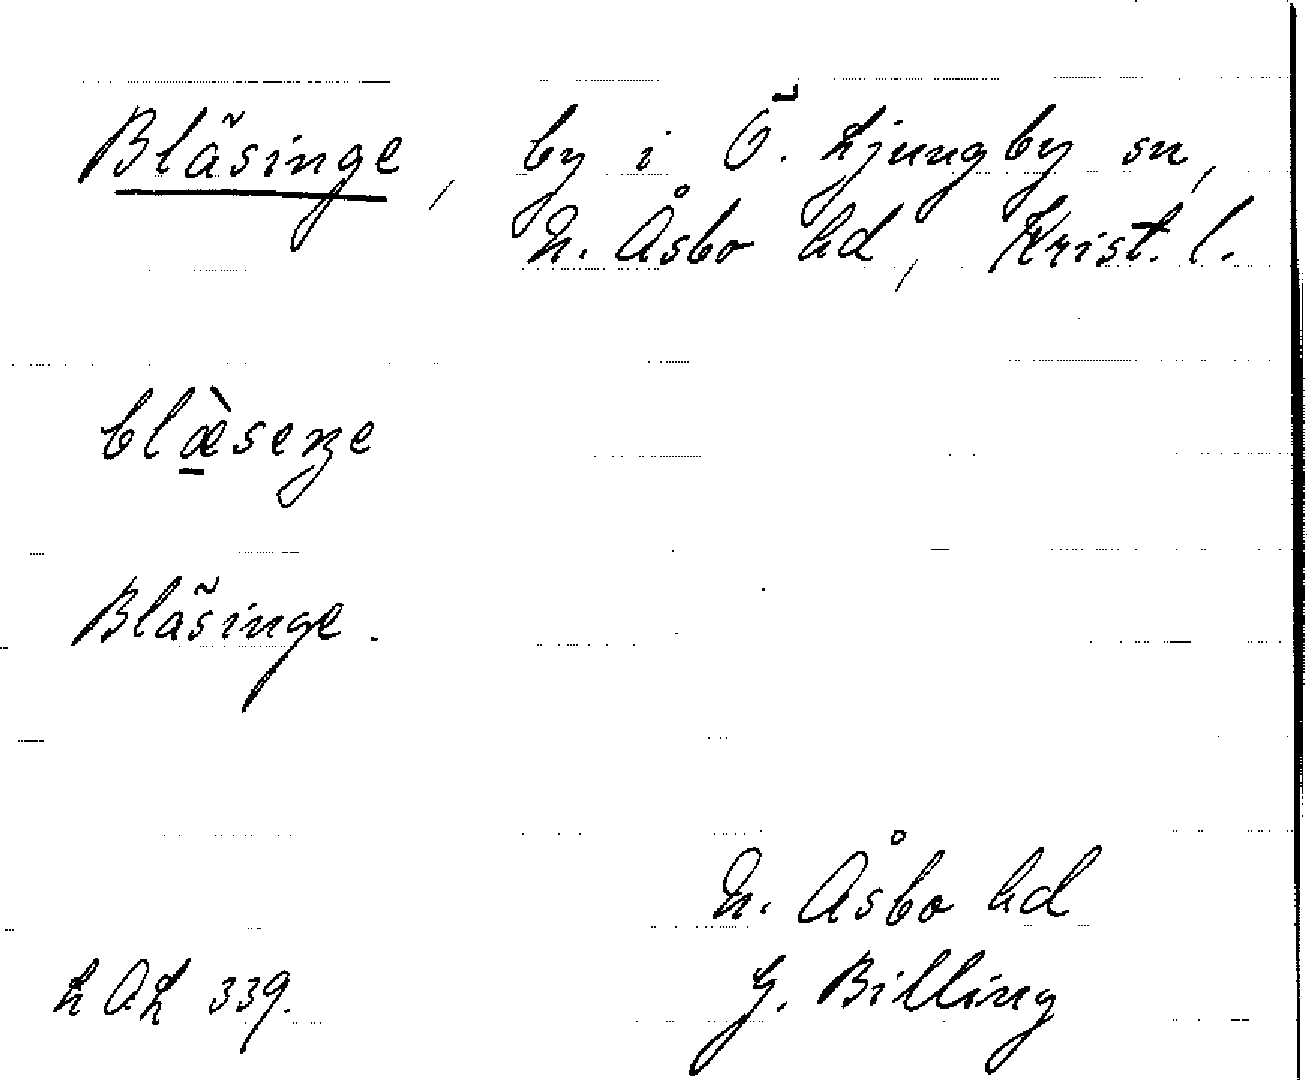 Bläsinge, by i Ö. Ljungby sn,
N. Åsbo hd, Krist. l.
blæ̀seŋe
Bläsinge.
N. Åsbo hd
LAL 339. G. Billing